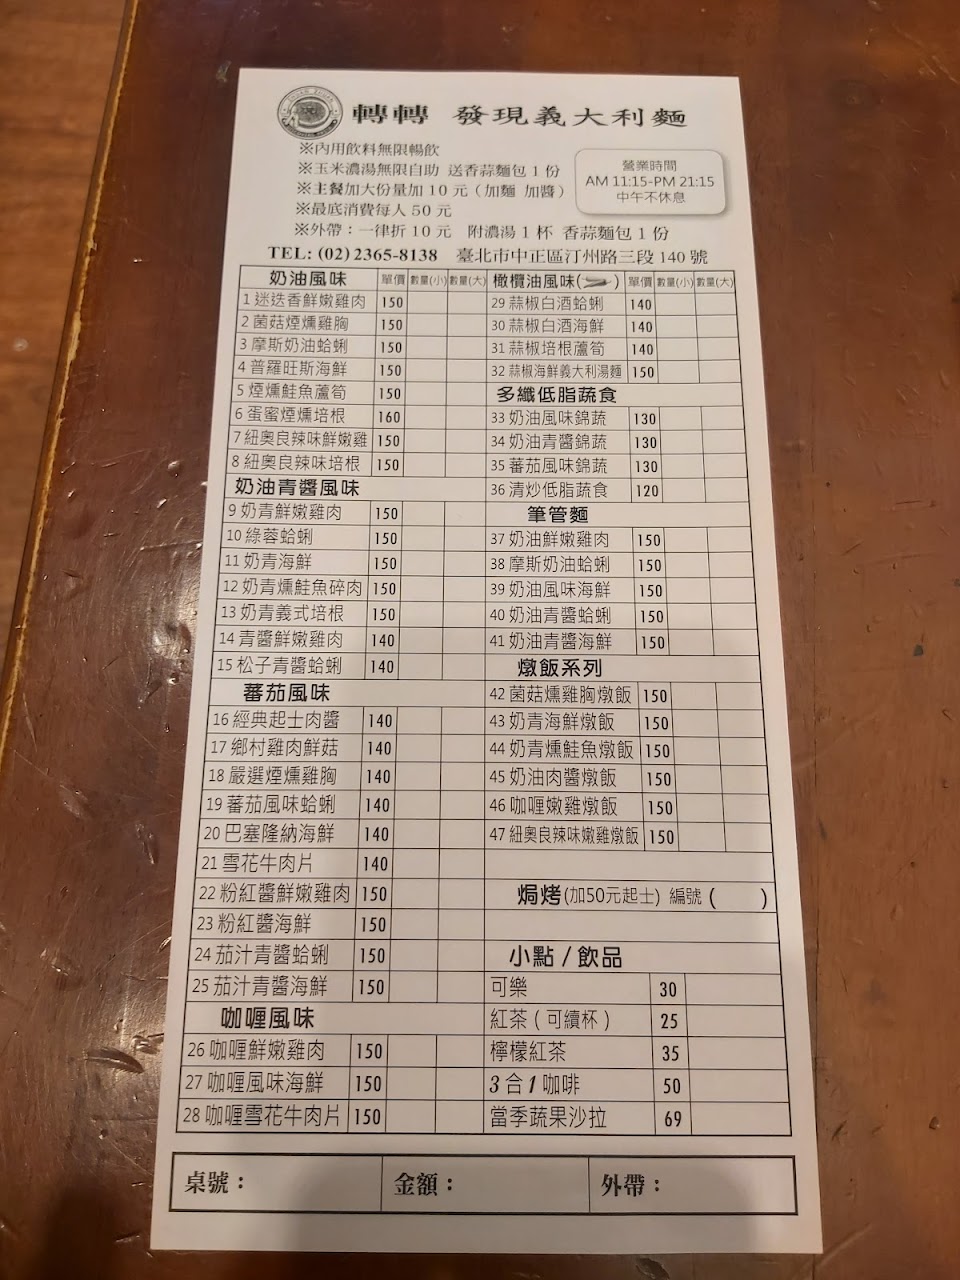 轉轉 發現義大利麵
※內用飲料無限暢飲
※玉米濃湯無限自助 送香蒜麵包1份
※主餐加大份量加10元（加麵 加醬）
※最底消費每人50元
※外帶：一律折10元 附濃湯1杯 香蒜麵包1份
營業時間
AM 11:15-PM 21:15
中午不休息
TEL: (02) 2365-8138 臺北市中正區汀州路三段140號
奶油風味 單價 數量(小) 數量(大)
1 迷迭香鮮嫩雞肉 150
2 菌菇煙燻雞胸 150
3 摩斯奶油蛤蜊 150
4 普羅旺斯海鮮 150
5 煙燻鮭魚蘆筍 150
6 蛋蜜煙燻培根 160
7 紐奧良辣味鮮嫩雞 150
8 紐奧良辣味培根 150
奶油青醬風味
9 奶青鮮嫩雞肉 150
10 綠蓉蛤蜊 150
11 奶青海鮮 150
12 奶青燻鮭魚碎肉 150
13 奶青義式培根 150
14 青醬鮮嫩雞肉 140
15 松子青醬蛤蜊 140
蕃茄風味
16 經典起士肉醬 140
17 鄉村雞肉鮮菇 140
18 嚴選煙燻雞胸 140
19 蕃茄風味蛤蜊 140
20 巴塞隆納海鮮 140
21 雪花牛肉片 140
22 粉紅醬鮮嫩雞肉 150
23 粉紅醬海鮮 150
24 茄汁青醬蛤蜊 150
25 茄汁青醬海鮮 150
咖喱風味
26 咖喱鮮嫩雞肉 150
27 咖喱風味海鮮 150
28 咖喱雪花牛肉片 150
橄欖油風味( ) 單價 數量(小) 數量(大)
29 蒜椒白酒蛤蜊 140
30 蒜椒白酒海鮮 140
31 蒜椒培根蘆筍 140
32 蒜椒海鮮義大利湯麵 150
多纖低脂蔬食
33 奶油風味錦蔬 130
34 奶油青醬錦蔬 130
35 蕃茄風味錦蔬 130
36 清炒低脂蔬食 120
筆管麵
37 奶油鮮嫩雞肉 150
38 摩斯奶油蛤蜊 150
39 奶油風味海鮮 150
40 奶油青醬蛤蜊 150
41 奶油青醬海鮮 150
燉飯系列
42 菌菇燻雞胸燉飯 150
43 奶青海鮮燉飯 150
44 奶青燻鮭魚燉飯 150
45 奶油肉醬燉飯 150
46 咖喱嫩雞燉飯 150
47 紐奧良辣味嫩雞燉飯 150
焗烤(加50元起士) 編號 ( )
小點 / 飲品
可樂 30
紅茶 ( 可續杯 ) 25
檸檬紅茶 35
3 合 1 咖啡 50
當季蔬果沙拉 69
桌號：
金額：
外帶：